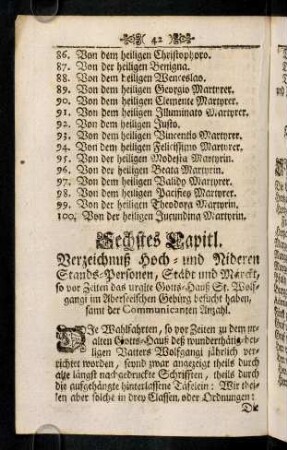 ( 42 )
86. Von dem heiligen Christophoro.
87. Von der heiligen Benigna.
88. Von dem heiligen Wenceslao.
89. Von dem heiligen Georgio Martyrer.
90. Von dem heiligen Clemente Martyrer.
91. Von dem heiligen Illuminato Martyrer.
92. Von dem heiligen Justo.
93. Von dem heiligen Vincentio Martyrer.
94. Von dem heiligen Felicissimo Martyrer.
95. Von der heiligen Modesta Martyrin.
96. Von der heiligen Beata Martyrin.
97. Von dem heiligen Valido Martyrer.
98. Von dem heiligen Pacifico Martyrer.
99. Von der heiligen Theodora Martyrin.
100. Von der heiligen Jucundina Martyrin.
Sechstes Capitl.
Verzeichnuß Hoch- und Nideren
Stands-Personen, Städt und Märckt,
so vor Zeiten das uralte Gotts-Hauß St. Wolf-
gangi im Aberseeischen Gebürg besucht haben,
samt der Communicanten Anzahl.
DIe Wahlfahrten, so vor Zeiten zu dem ur-
alten Gotts-Hauß deß wunderthätig-hei-
ligen Vatters Wolfgangi jährlich ver-
richtet worden, seynd zwar angezeigt theils durch
alte längst nachgedruckte Schrifften, theils durch
die aufgehängte hinterlassene Täfelein: Wir thei-
len aber solche in drey Classen, oder Ordnungen:
Die